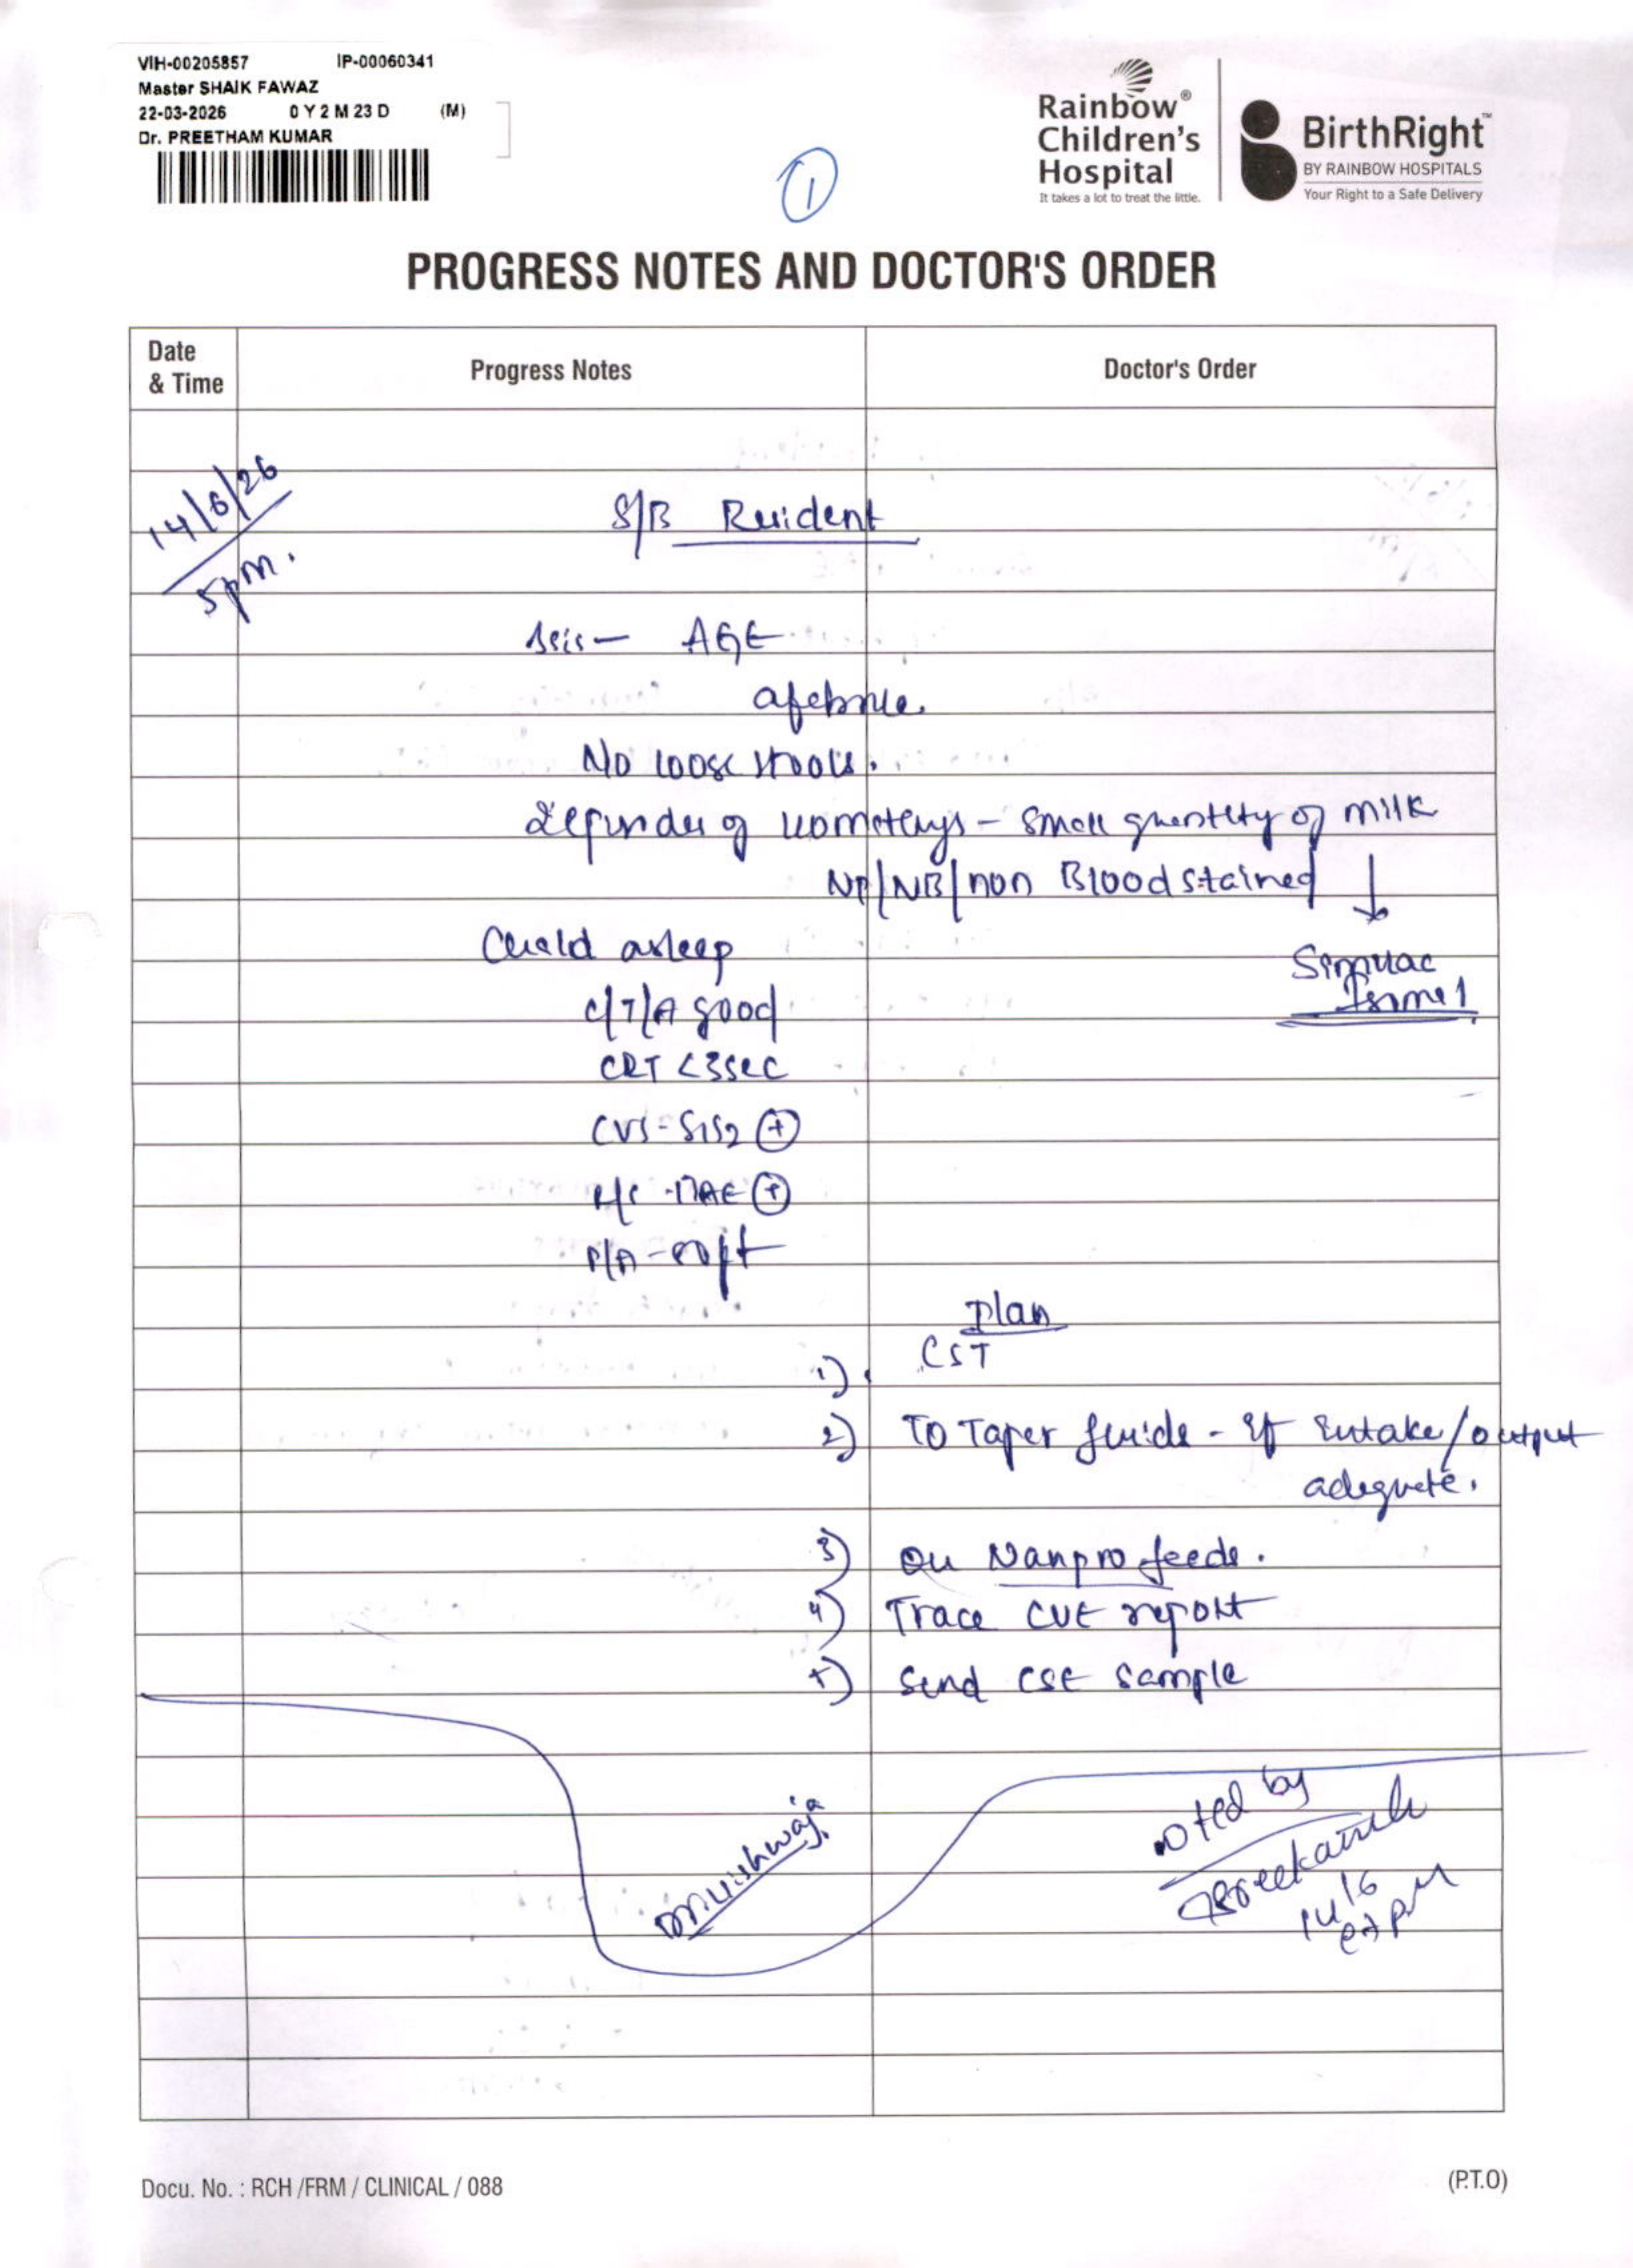 VIH-00205857 IP-00060341
Master SHAIK FAWAZ
22-03-2026 0 Y 2 M 23 D (M)
Dr. PREETHAM KUMAR
1
Rainbow®
Children's
Hospital
It takes a lot to treat the little.
BirthRight™
BY RAINBOW HOSPITALS
Your Right to a Safe Delivery
PROGRESS NOTES AND DOCTOR'S ORDER
Date & Time Progress Notes Doctor's Order
14/6/26
5pm.
S/B Resident
AGE
afebrile.
No loose stools.
of vomitings - small quantity of milk
NP/NB/non Blood stained
Child asleep
Simylac
C/T/A good
CRT <3sec
CVS - S1S2 +
P/A - soft
Plan
1) CST
2) To Taper fluids - If intake/output
adequate.
3) On Nanpro feeds.
4) Trace CUE report
5) Send CSE sample
noted by
14/6
Docu. No. : RCH /FRM / CLINICAL / 088
(P.T.O)